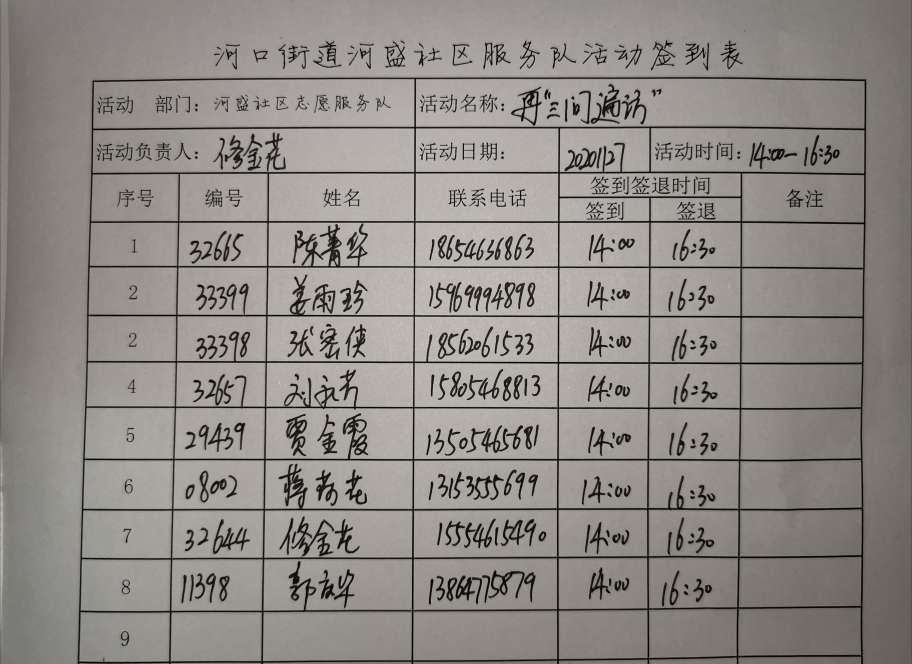 河口街道河盛社区服务队活动签到表
活动 部门: 河盛社区志愿服务队 活动名称: 再"三问遍访"
活动负责人: 修金花 活动日期: 20201127 活动时间: 14:00-16:30
序号 编号 姓名 联系电话 签到签退时间 备注
签到 签退
1 32665 陈菁华 18654636863 14:00 16:30
2 33399 姜雨珍 15969994898 14:00 16:30
2 33398 张密侠 18562061533 14:00 16:30
4 32657 刘永芳 15805468813 14:00 16:30
5 29439 贾金霞 13505465681 14:00 16:30
6 08002 蒋荷花 13153555699 14:00 16:30
7 32644 修金花 15554615490 14:00 16:30
8 11398 郭友华 13864775879 14:00 16:30
9